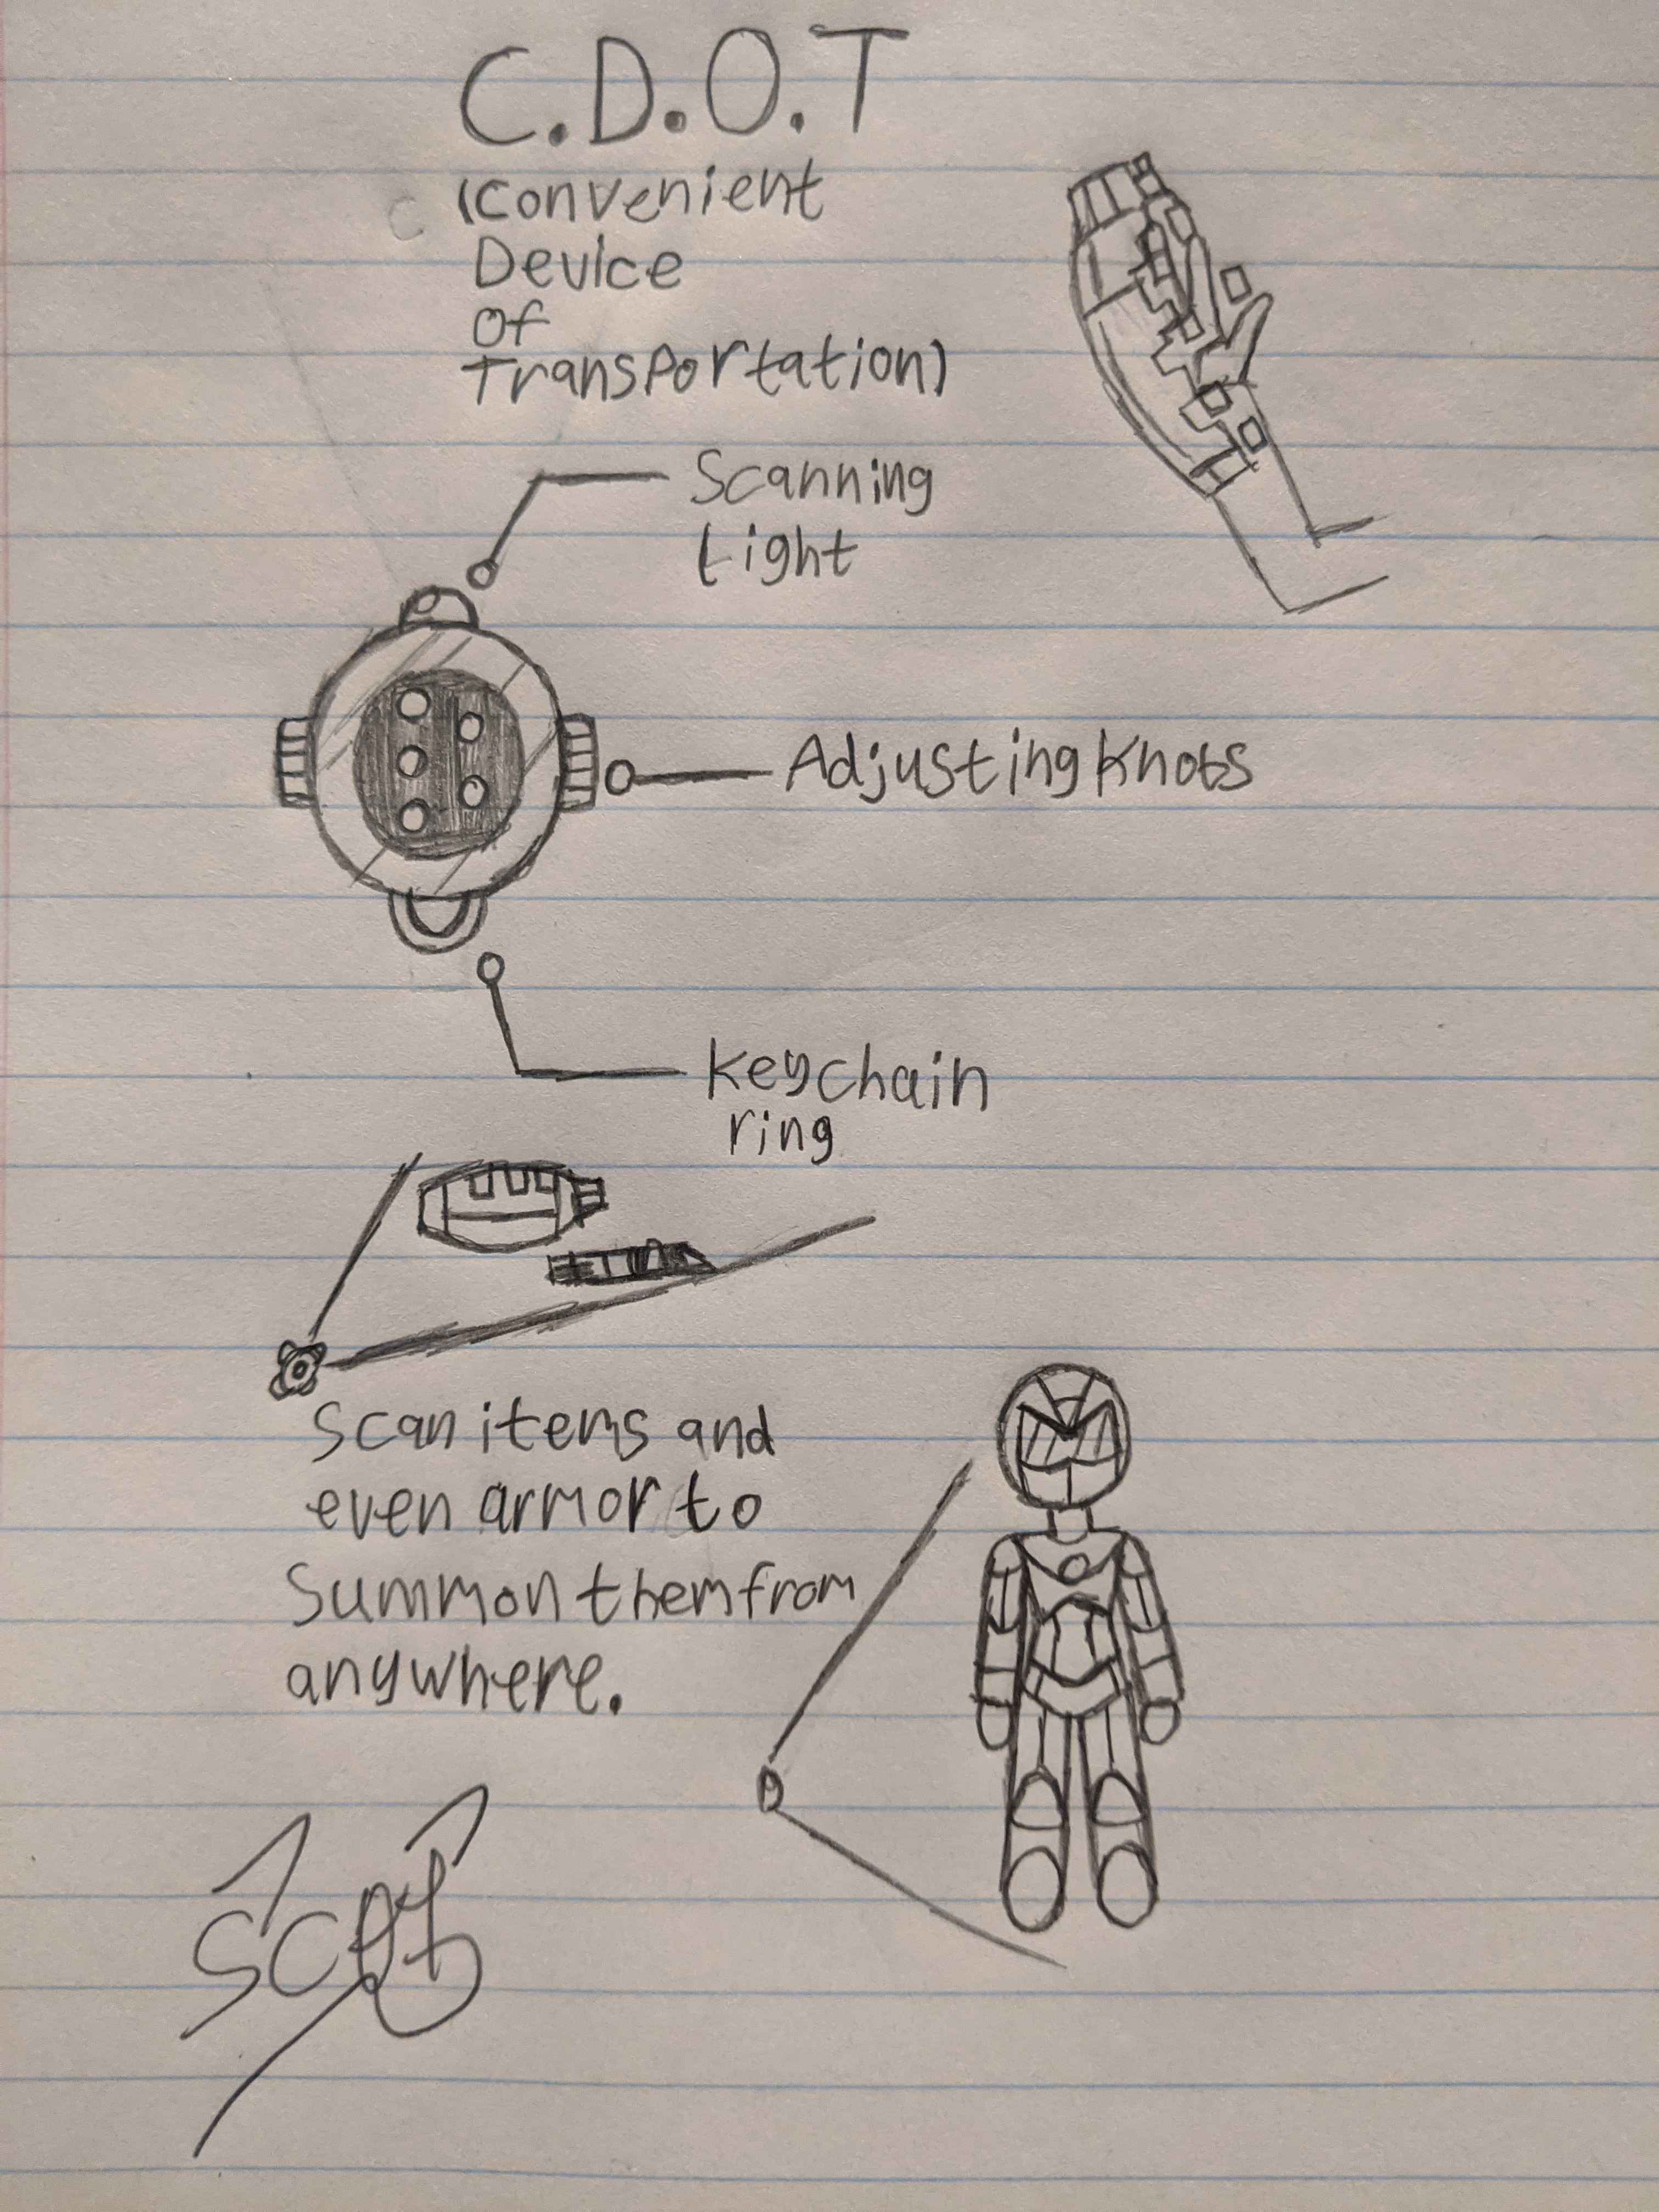 C.D.O.T
(Convenient
Device
Of
Transportation)
Scanning
Light
Adjusting Knobs
Keychain
ring
Scan items and
even armor to
Summon them from
anywhere.